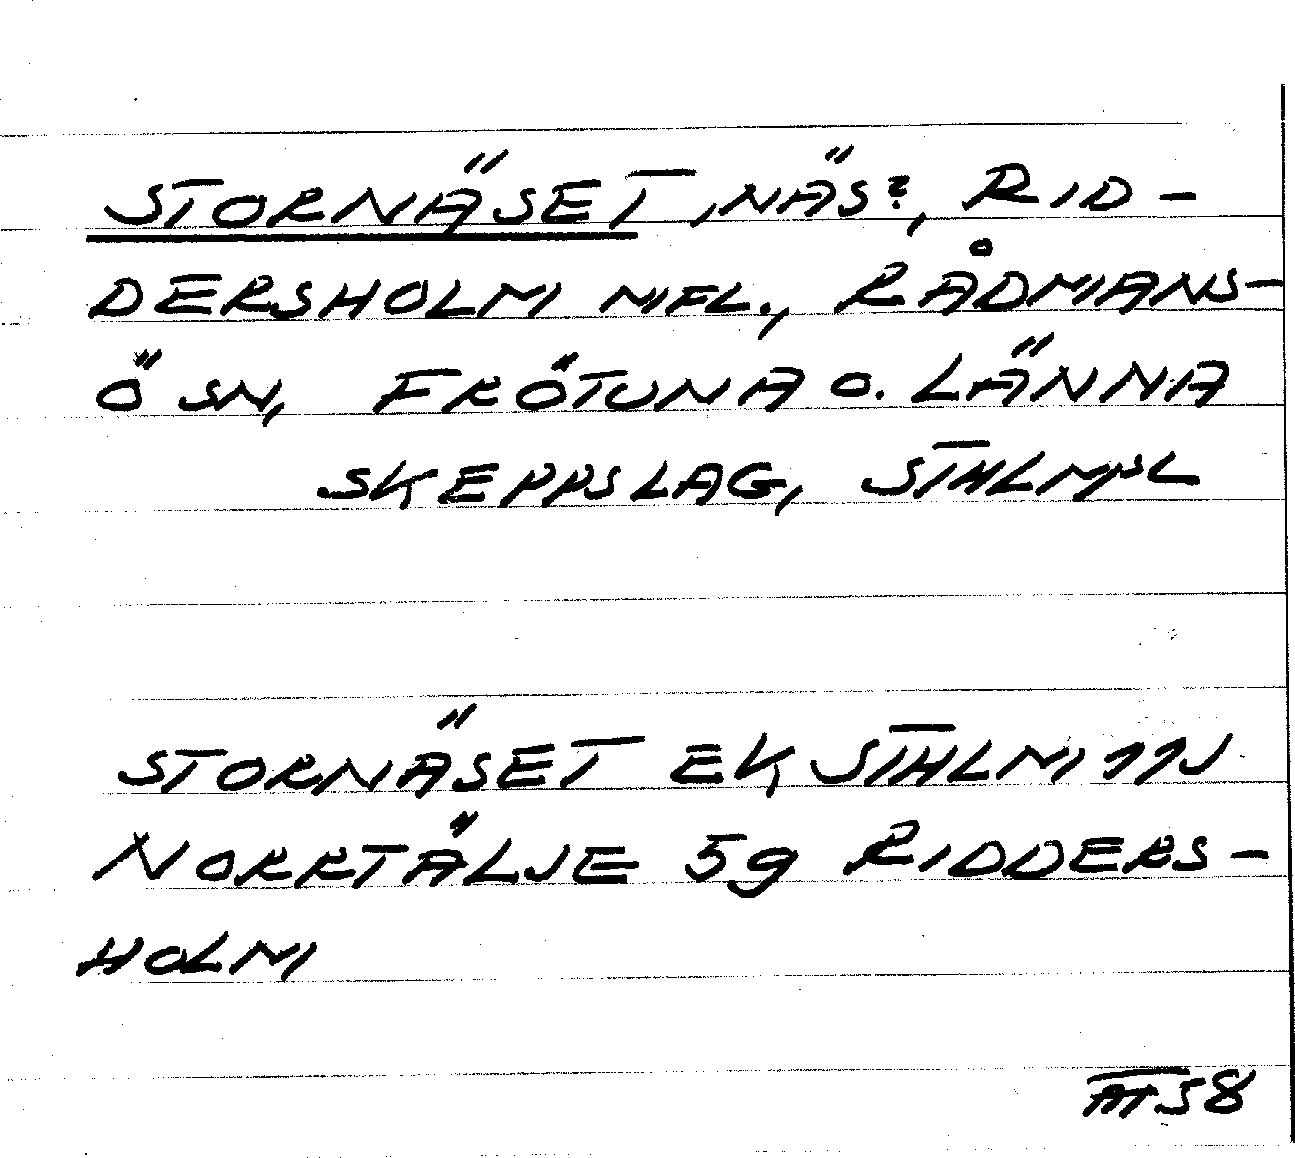 STORNÄSET, NÄS?, RID-
DERSHOLM MFL., RÅDMANS-
Ö SN, FRÖTUNA O. LÄNNA
SKEPPSLAG, STHLMSL
STORNÄSET EK STHLM 11J
NORRTÄLJE 5g RIDDERS-
HOLM